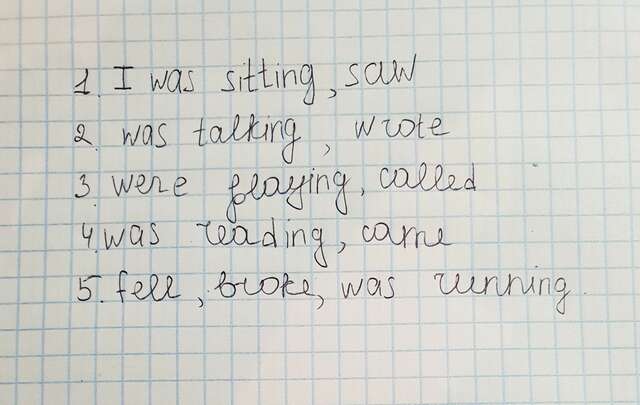 1. I was sitting, saw
2. was talking, wrote
3. were playing, called
4. was reading, came
5. fell, broke, was running.